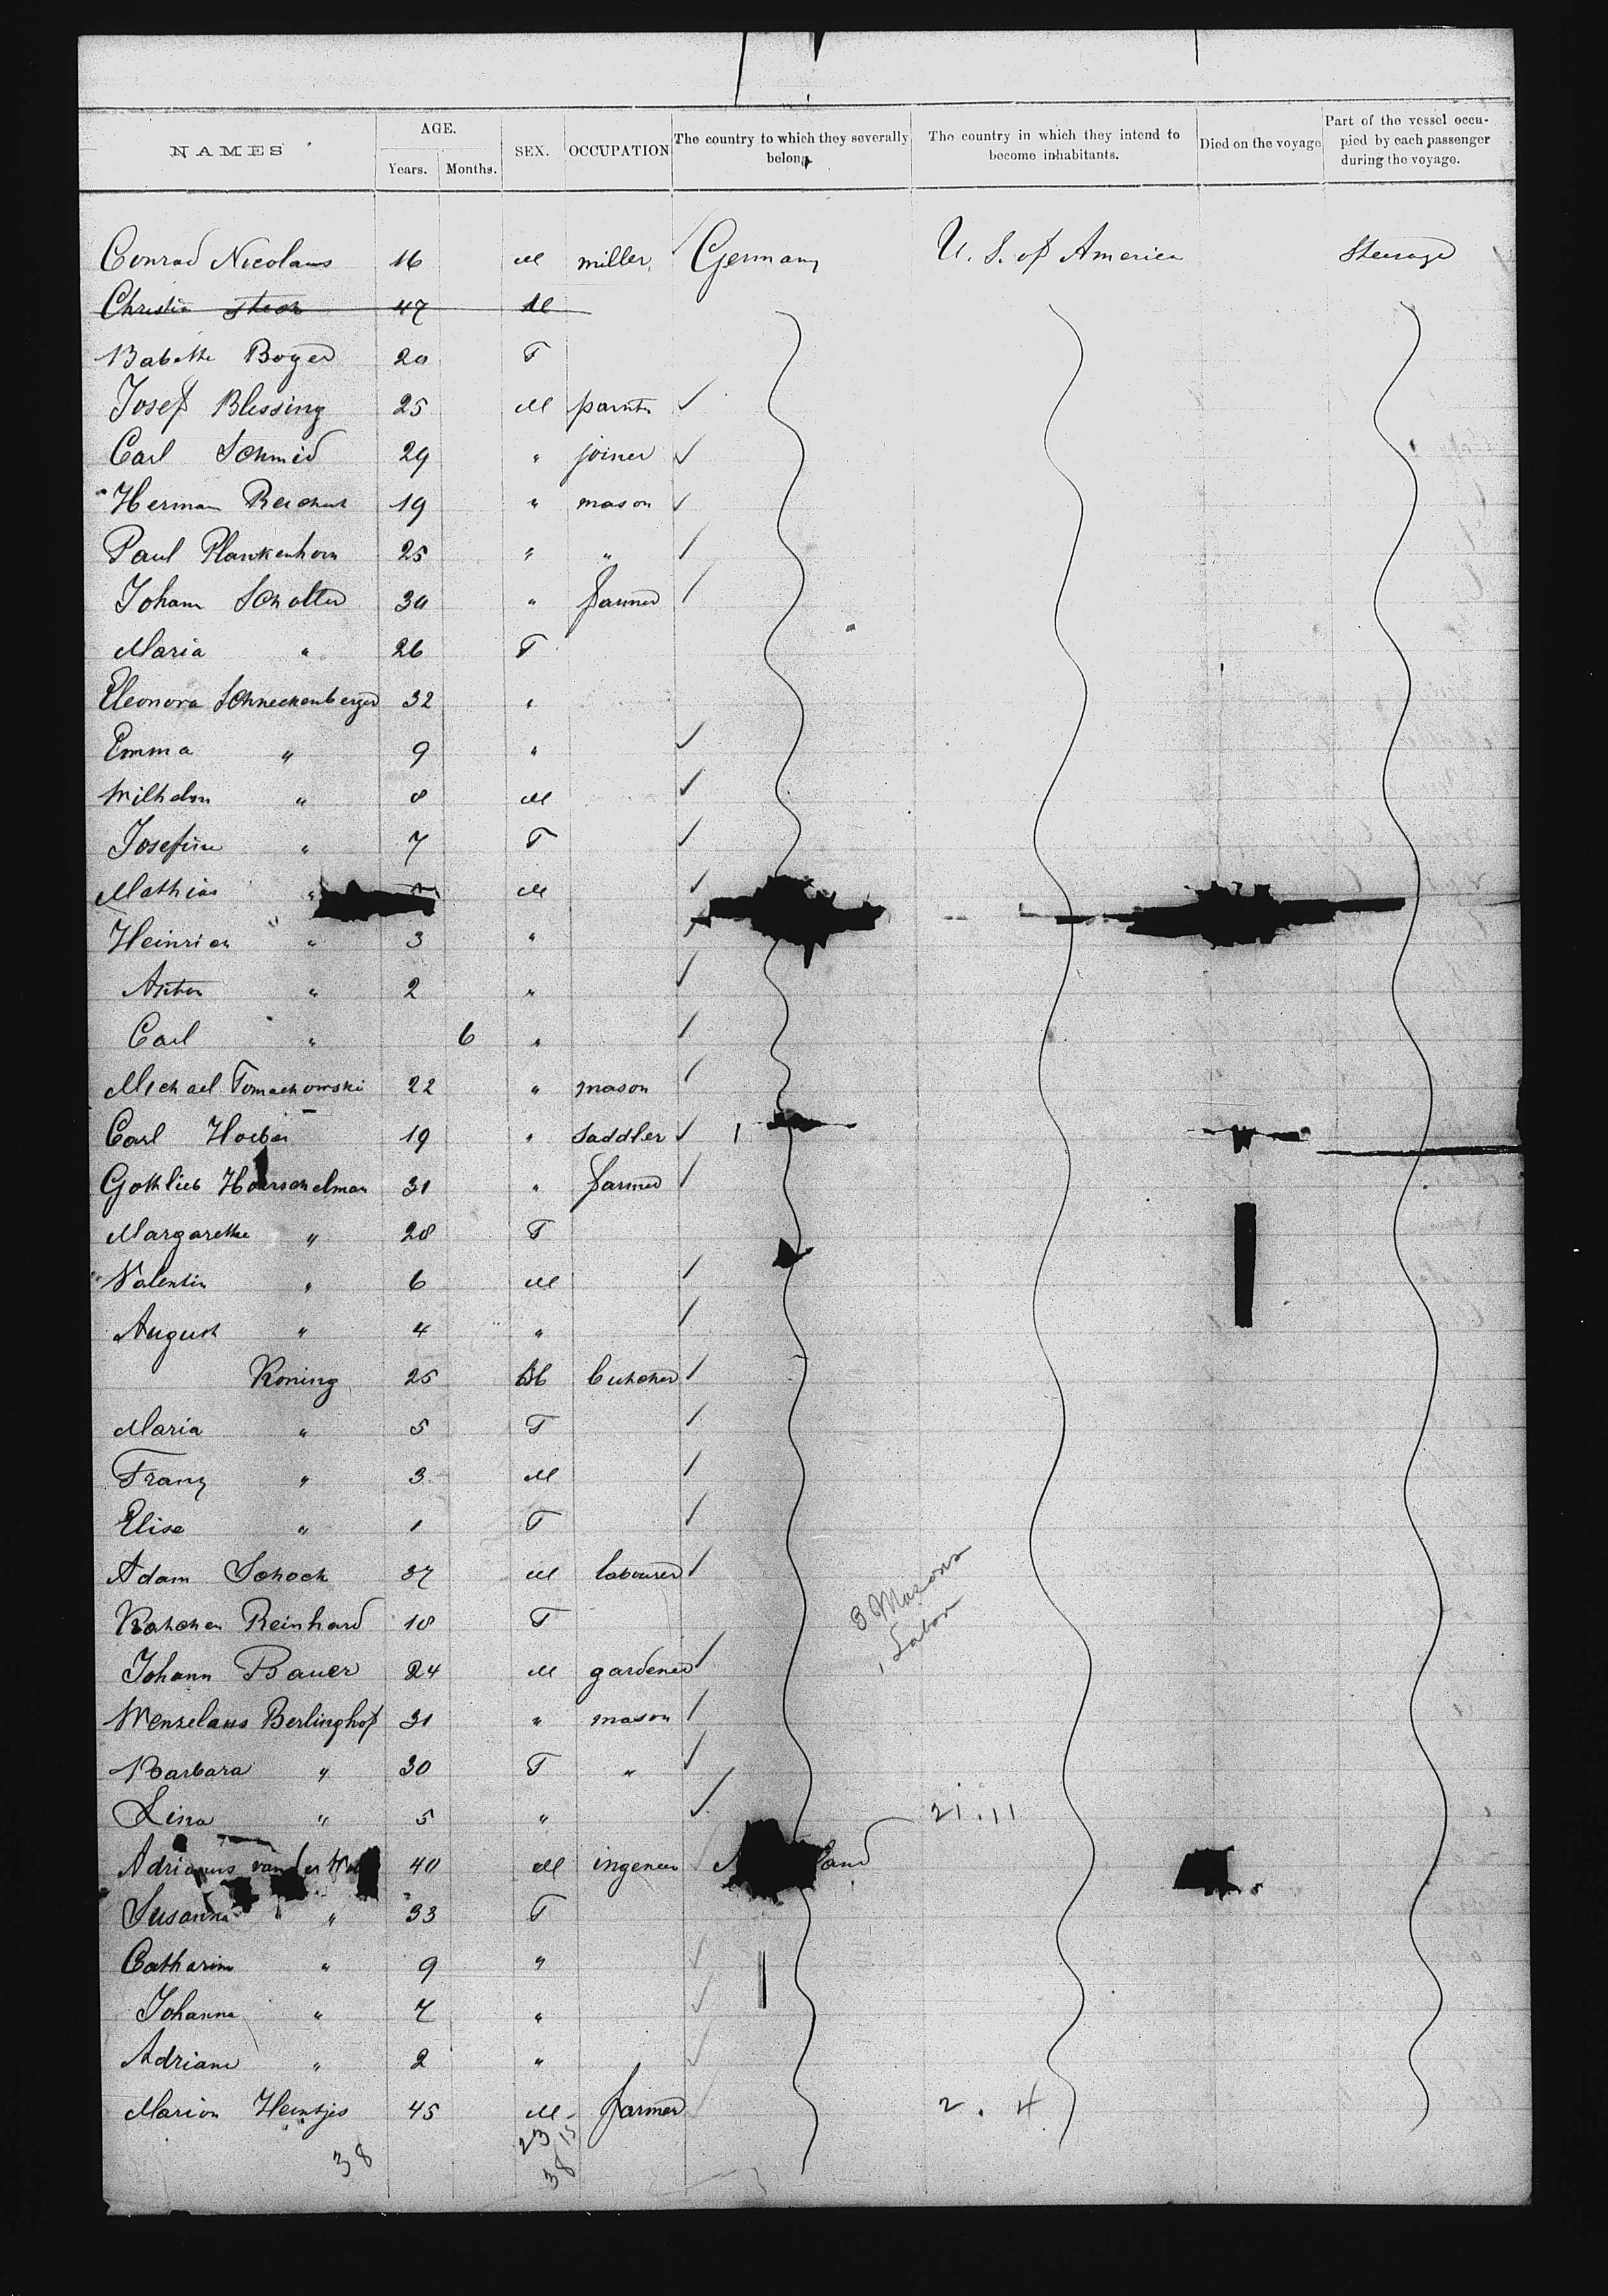 NAMES AGE. Years. Months. SEX. OCCUPATION The country to which they severally belong. The country in which they intend to become inhabitants. Died on the voyage Part of the vessel occupied by each passenger during the voyage.
Conrad Nicolaus 16 M miller Germany U. S. of America Steerage
Christian 47 M
Babette Boyer 20 F
Josef Blessing 25 M
Carl Schmid 29 " joiner
Herman 19 " mason
Paul Plankenhorn 25 " "
Johann Scholter 30 " farmer
Maria " 26 F
Eleonora Schneckenberger 32 "
Emma " 9 "
Wilhelm " 8 M
Josefine " 7 F
Mathias " M
Heinrich " 3 "
Anton " 2 "
Carl " 6 "
Michael Tomachowski 22 " mason
Carl 19 " saddler
Gottlieb Hoerschelman 31 " farmer
Margarethe " 28 F
Valentin " 6 M
August " 4 "
Koning 25 M butcher
Maria " 5 F
Franz " 3 M
Elise " 1 F
Adam Schoch 37 M labourer
Katchen Reinhard 18 F
Johann Bauer 24 M gardener
Wenzelaus Berlinghof 31 " mason
Barbara " 30 F "
Lina " 5 "
21.11
Adrianus van der 40 M ingeneer
Susanna " 33 F
Catharina " 9 "
Johanna " 7 "
Adriane " 2 "
Marion Heintjes 45 M farmer
3 Masons
1 Labor
2. 4
38
23 15
38